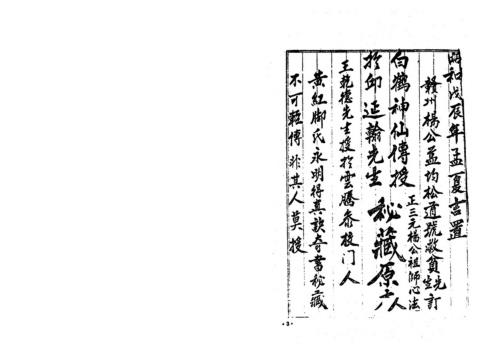 昭和戊辰年孟夏吉置
贛州楊公益均松道號救貧先生訂
正三元楊公祖師心法
白鶴神仙傳授
於邱延翰先生
秘藏原本
王乾德先生授於雲騰泰校门人
黃紅脚氏永明得真訣奇書秘藏
不可輕傳非其人莫授
•3•